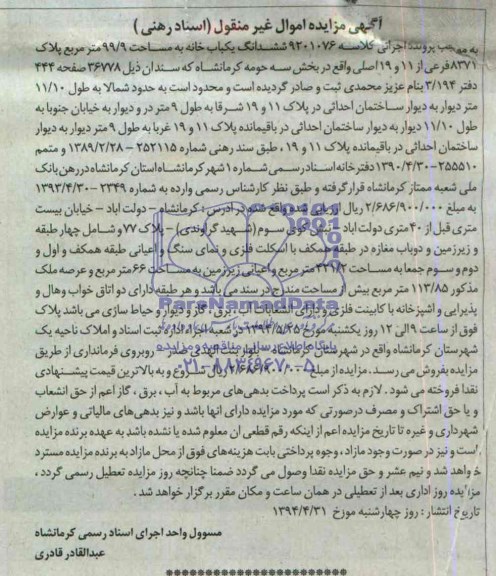 آگهی مزایده اموال غیر منقول (اسناد رهنی)
به موجب پرونده اجرائی کلاسه ۹۲۰۱۰۷۶ ششدانگ یکباب خانه به مساحت ۹۹/۹ متر مربع پلاک
۸۳۷۱ فرعی از ۱۱ و ۱۹ اصلی واقع در بخش سه حومه کرمانشاه که سند ان ذیل ۳۶۷۷۸ صفحه ۴۴۴
دفتر ۳/۱۹۴ بنام عزیز محمدی ثبت و صادر گردیده است و محدود است به حدود شمالا به طول ۱۱/۱۰
متر دیوار به دیوار ساختمان احداثی در پلاک ۱۱ و ۱۹ شرقا به طول ۹ متر در و دیوار به خیابان جنوبا به
طول ۱۱/۱۰ دیوار به دیوار ساختمان احداثی در باقیمانده پلاک ۱۱ و ۱۹ غربا به طول ۹ متر دیوار به دیوار
ساختمان احداثی در باقیمانده پلاک ۱۱ و ۱۹ ، طبق سند رهنی شماره ۲۵۲۱۱۵ – ۱۳۸۹/۲/۲۸ و متمم
۲۵۵۵۱۰ – ۱۳۹۰/۴/۳۰ دفترخانه اسناد رسمی شماره ۱ شهر کرمانشاه استان کرمانشاه در رهن بانک
ملی شعبه ممتاز کرمانشاه قرار گرفته و طبق نظر کارشناس رسمی وارده به شماره ۲۳۴۹ – ۱۳۹۳/۴/۳۰
به مبلغ ۲/۶۸۶/۹۰۰/۰۰۰ ریال ارزیابی شده واقع شده در آدرس : کرمانشاه – دولت اباد – خیابان بیست
متری قبل از ۴۰ متری دولت اباد – نبش کوی سوم (شهید گراوندی) – پلاک ۷۷ و شامل چهار طبقه
و زیرزمین و دوباب مغازه در طبقه همکف با اسکلت فلزی و نمای سنگ و اعیانی طبقه همکف و اول و
دوم و سوم جمعا به مساحت متر مربع و اعیانی زیرزمین به مساحت ۶۶ متر مربع و عرصه ملک
مذکور ۱۱۳/۸۵ متر مربع بیش از مساحت مندرج در سند می باشد و هر طبقه دارای دو اتاق خواب و هال و
پذیرایی و اشپزخانه با کابینت فلزی و دارای انشعابات آب ، برق ، گاز و دیوار و حیاط سازی می باشد پلاک
فوق از ساعت ۹ الی ۱۲ روز یکشنبه مورخ ۱۳۹۴/۵/۲۵ در شعبه اجرا اداره ثبت اسناد و املاک ناحیه یک
شهرستان کرمانشاه واقع در شهرستان کرمانشاه – بلوار بنت الهدی صدر – روبروی فرمانداری از طریق
مزایده بفروش می رسد. مزایده از مبلغ ریال شروع و به بالاترین قیمت پیشنهادی
نقدا فروخته می شود . لازم به ذکر است پرداخت بدهی های مربوط به آب ، برق ، گاز اعم از حق انشعاب
و یا حق اشتراک و مصرف درصورتی که مورد مزایده دارای انها باشد و نیز بدهی های مالیاتی و عوارض
شهرداری و غیره تا تاریخ مزایده اعم از اینکه رقم قطعی ان معلوم شده یا نشده باشد به عهده برنده مزایده
است و نیز در صورت وجود مازاد ، وجوه پرداختی بابت هزینه های فوق از محل مازاد به برنده مزایده مسترد
خواهد شد و نیم عشر و حق مزایده نقدا وصول می گردد ضمنا چنانچه روز مزایده تعطیل رسمی گردد ،
مزایده روز اداری بعد از تعطیلی در همان ساعت و مکان مقرر برگزار خواهد شد .
تاریخ انتشار : روز چهارشنبه مورخ ۱۳۹۴/۴/۳۱
مسوول واحد اجرای اسناد رسمی کرمانشاه
عبدالقادر قادری
ParsNamadData
پایگاه اطلاع رسانی مناقصه و مزایده
۰۲۱-۸۸۳۴۹۶۷۰-۵